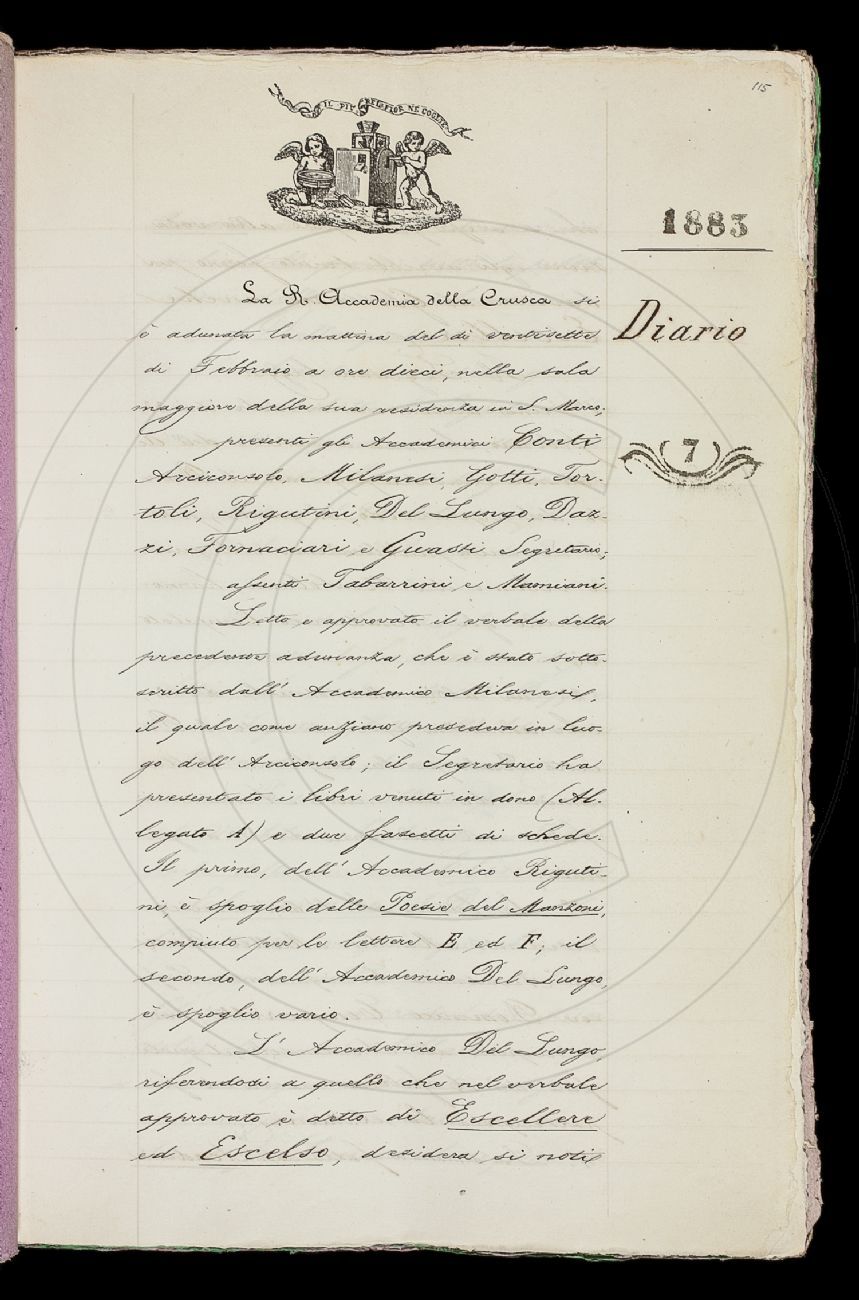 115
IL PIÙ BEL FIOR NE COGLIE
1883
Diario
7
La R. Accademia della Crusca si
è adunata la mattina del dì ventisette
di Febbraio a ore dieci, nella sala
maggiore della sua residenza in S. Marco;
presenti gli Accademici Conti
Arciconsolo, Milanesi, Gotti, Tor-
toli, Rigutini, Del Lungo, Daz-
zi, Fornaciari e Guasti Segretario;
assenti Tabarrini e Mamiani.
Letto e approvato il verbale della
precedente adunanza, che è stato sotto-
scritto dall'Accademico Milanesi,
il quale come anziano presedeva in luo-
go dell'Arciconsolo; il Segretario ha
presentato i libri venuti in dono (Al-
legato A) e due fascetti di schede.
Il primo, dell'Accademico Riguti-
ni, è spoglio delle Poesie del Manzoni,
compiuto per le lettere E ed F; il
secondo, dell'Accademico Del Lungo,
è spoglio vario.
L'Accademico Del Lungo,
riferendosi a quello che nel verbale
approvato è detto di Escellere
ed Escelso, desidera si noti